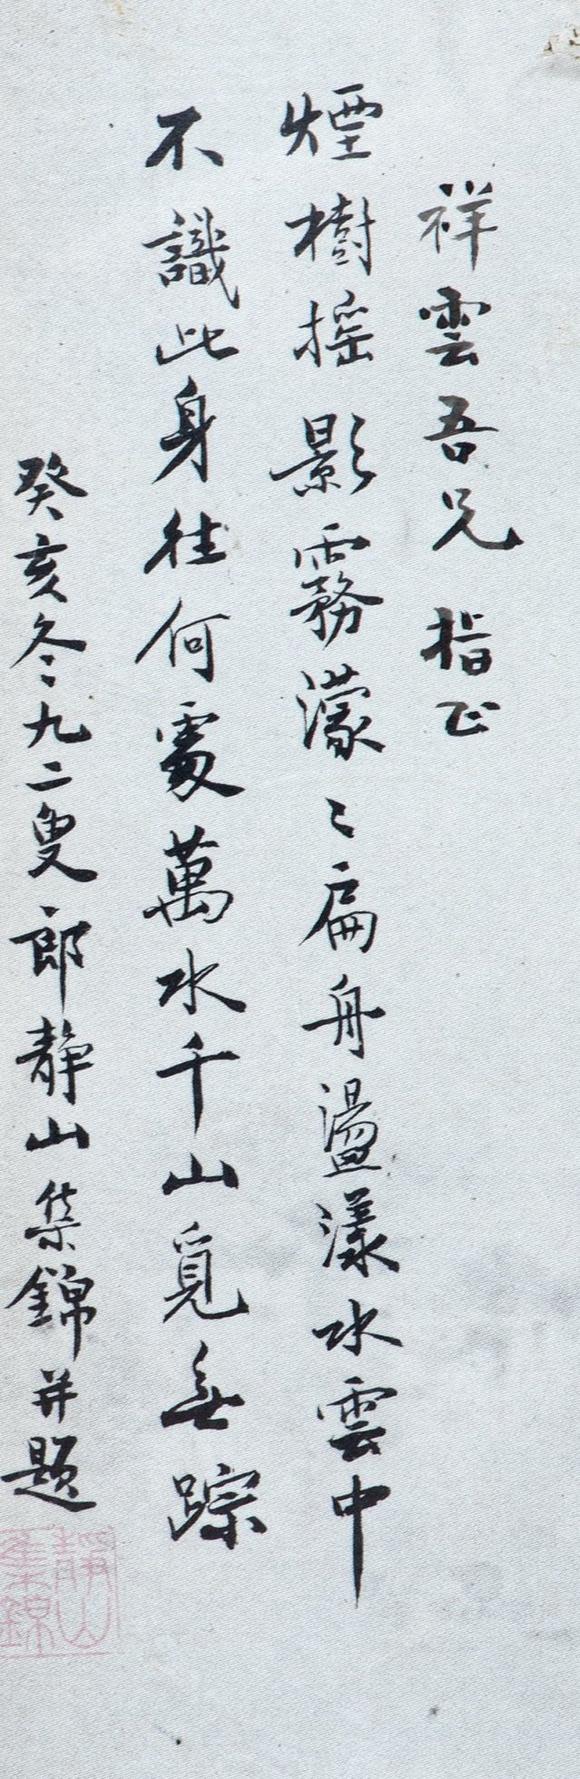 祥雲吾兄 指正
煙樹搖影霧濛〻扁舟盪漾水雲中
不識此身往何處萬水千山覓無踪
癸亥冬九二叟郎靜山集錦并題
靜山集錦